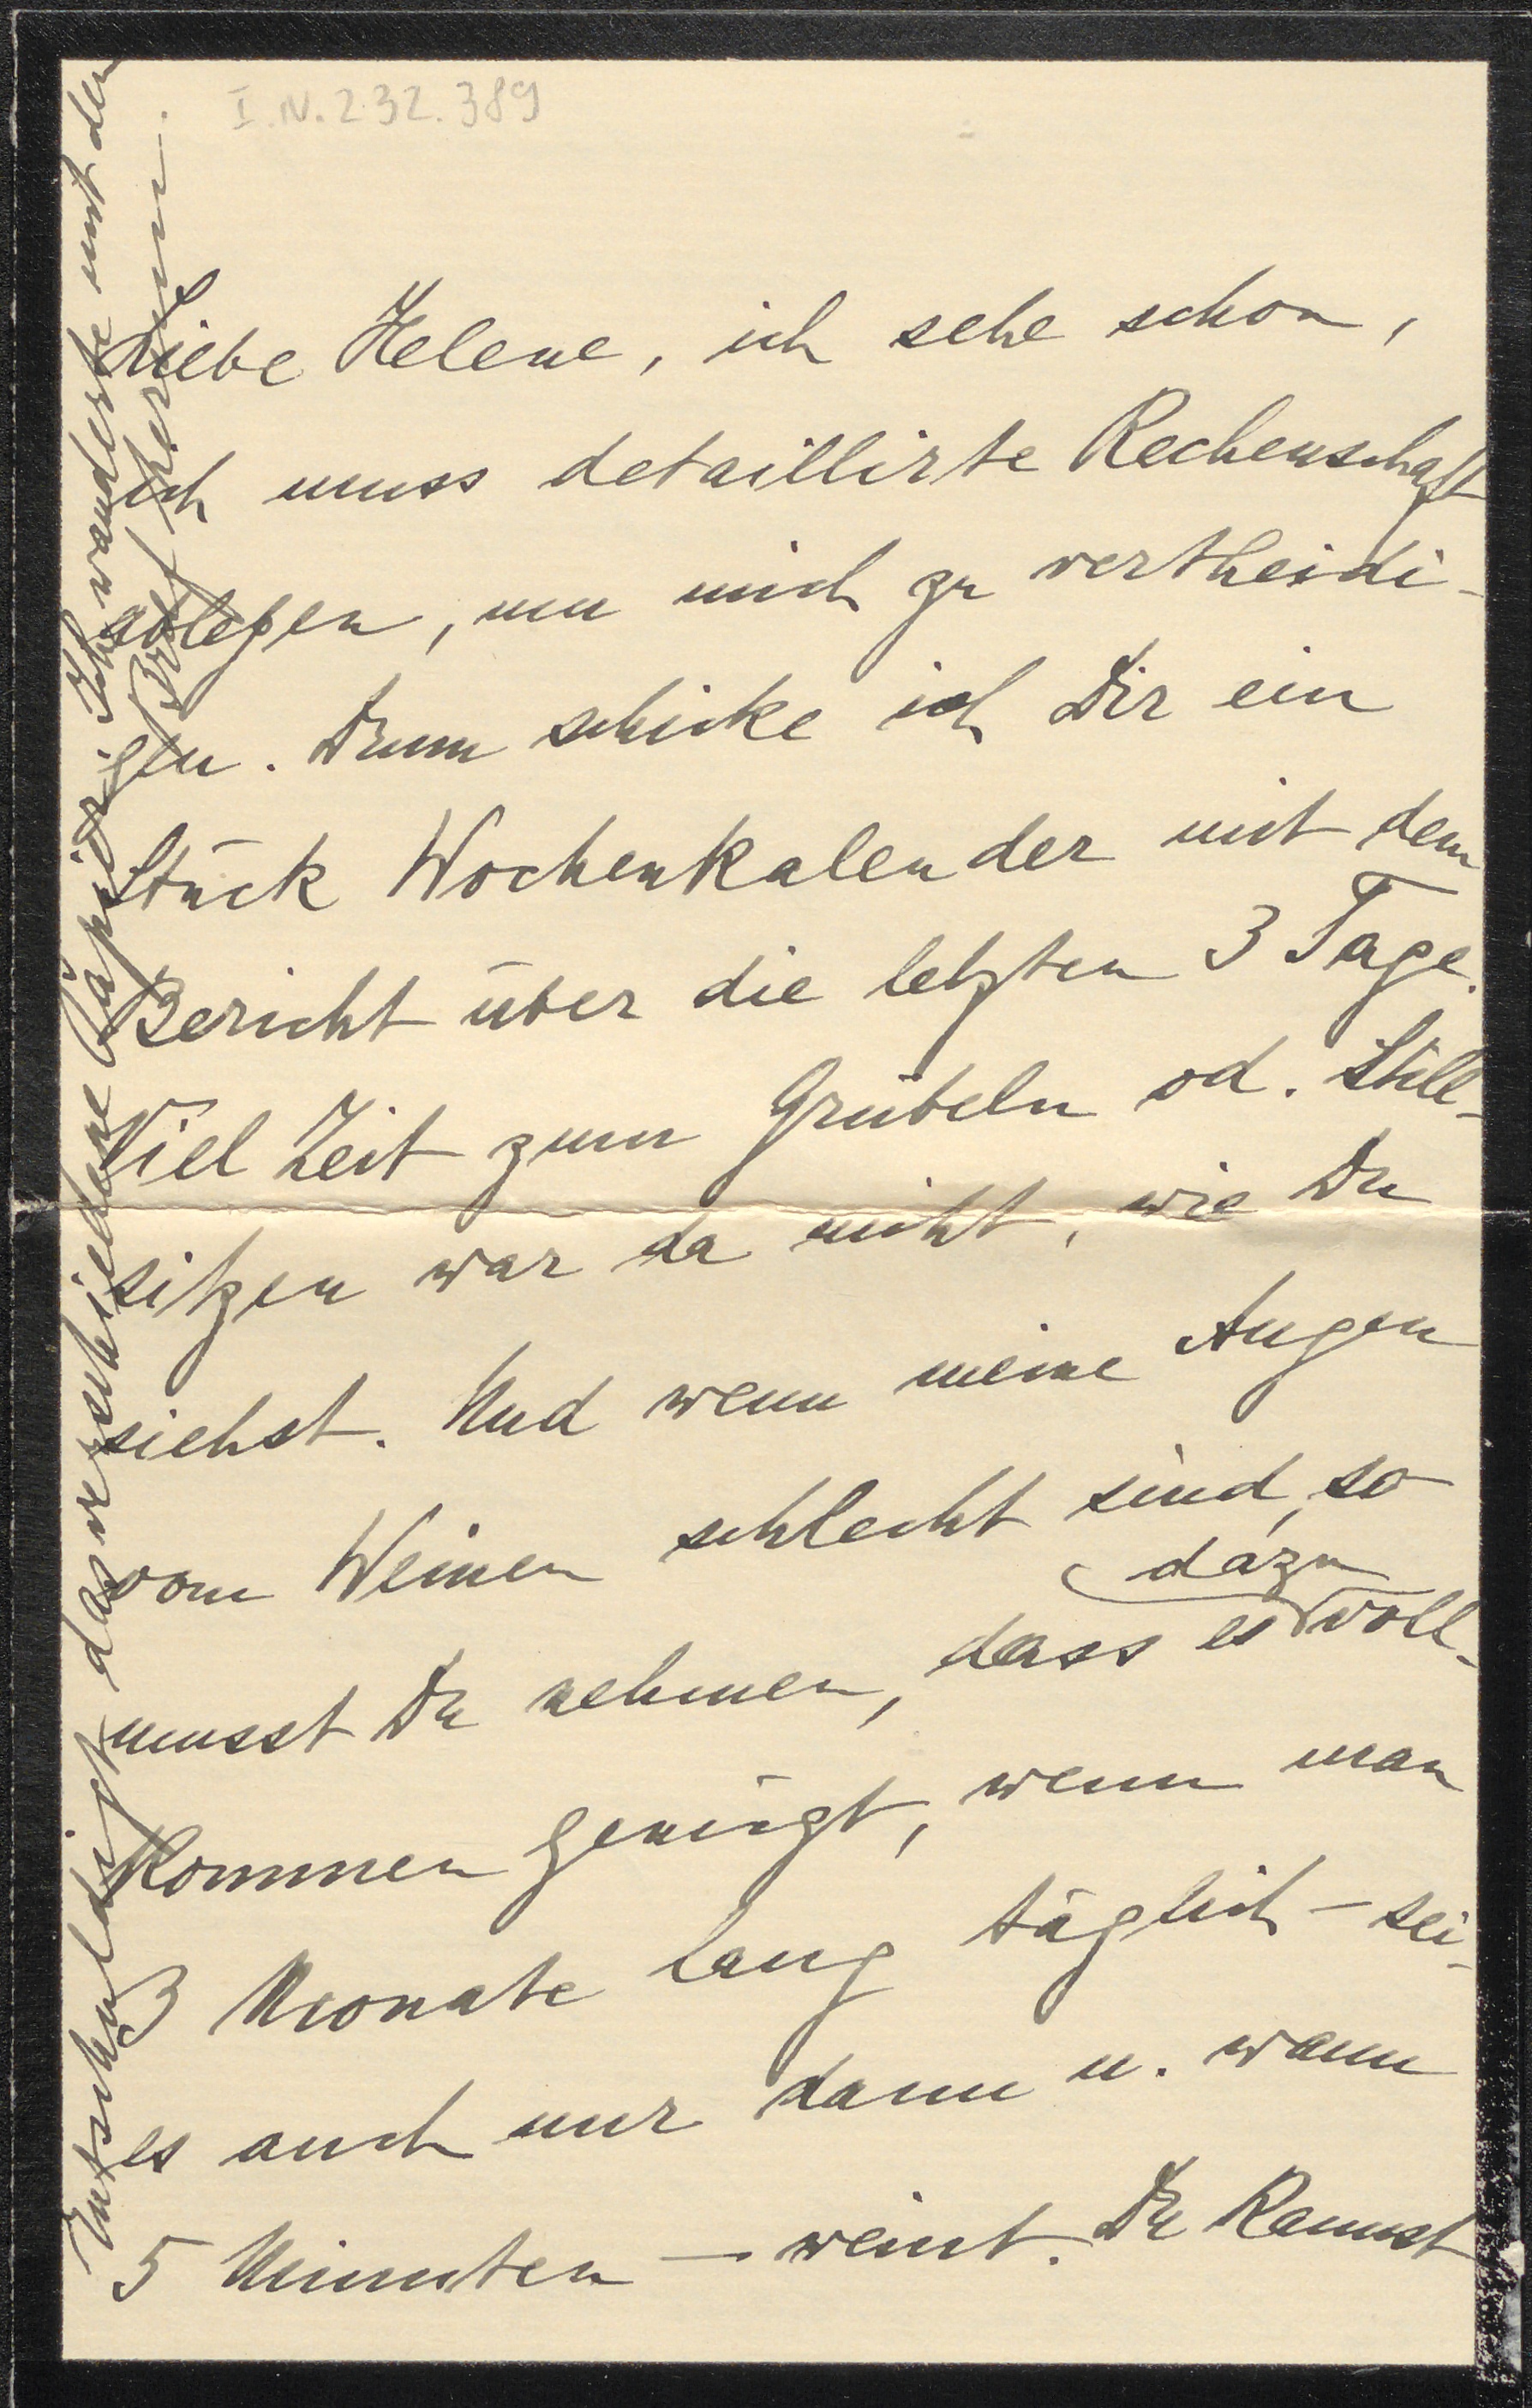 I.N. 232.389
Liebe Helene, ich sehe schon,
ich muss detaillirte Rechenschaft
ablegen, um mich zu vertheidi-
gen. Drum schicke ich Dir ein
Stück Wochenkalender mit dem
Bericht über die letzten 3 Tage.
Viel Zeit zum Grübeln od. Still-
sitzen war da nicht, wie Du
siehst. Und wenn meine Augen
vom Weinen schlecht sind, so
musst Du nehmen, dass es dazu voll-
kommen genügt, wenn man
3 Monate lang täglich – sei
es auch nur dann u. wann
5 Minuten – weint. Du kannst
Entschuldigt das verschiedene Papier; ich wanderte mit dem
Brief herum.